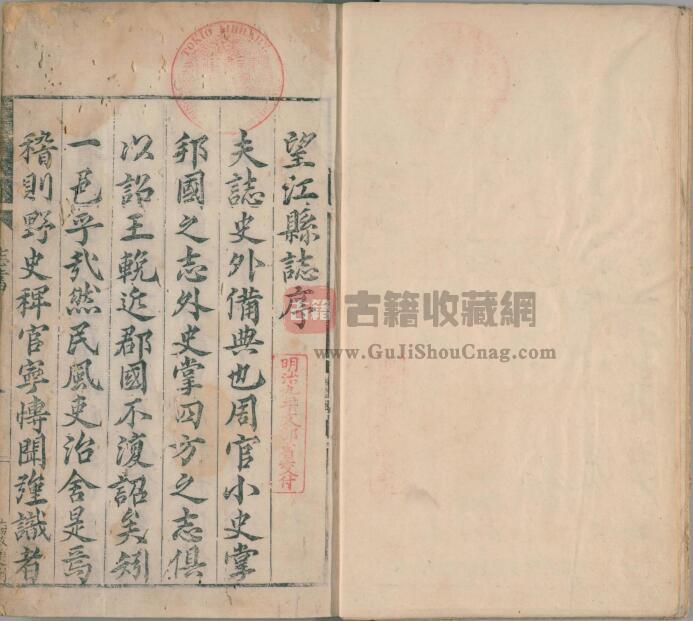 望江縣誌序
夫誌史外備典也周官小史掌
邦國之志外史掌四方之志俱
以詔王輓近郡國不復詔矣矧
一邑乎哉然民風吏治舍是焉
稽則野史稗官寧博聞強識者
TOKIO LIBRARY
明治九年文部省交付
古籍
古籍收藏網
www.GuJiShouCnag.com